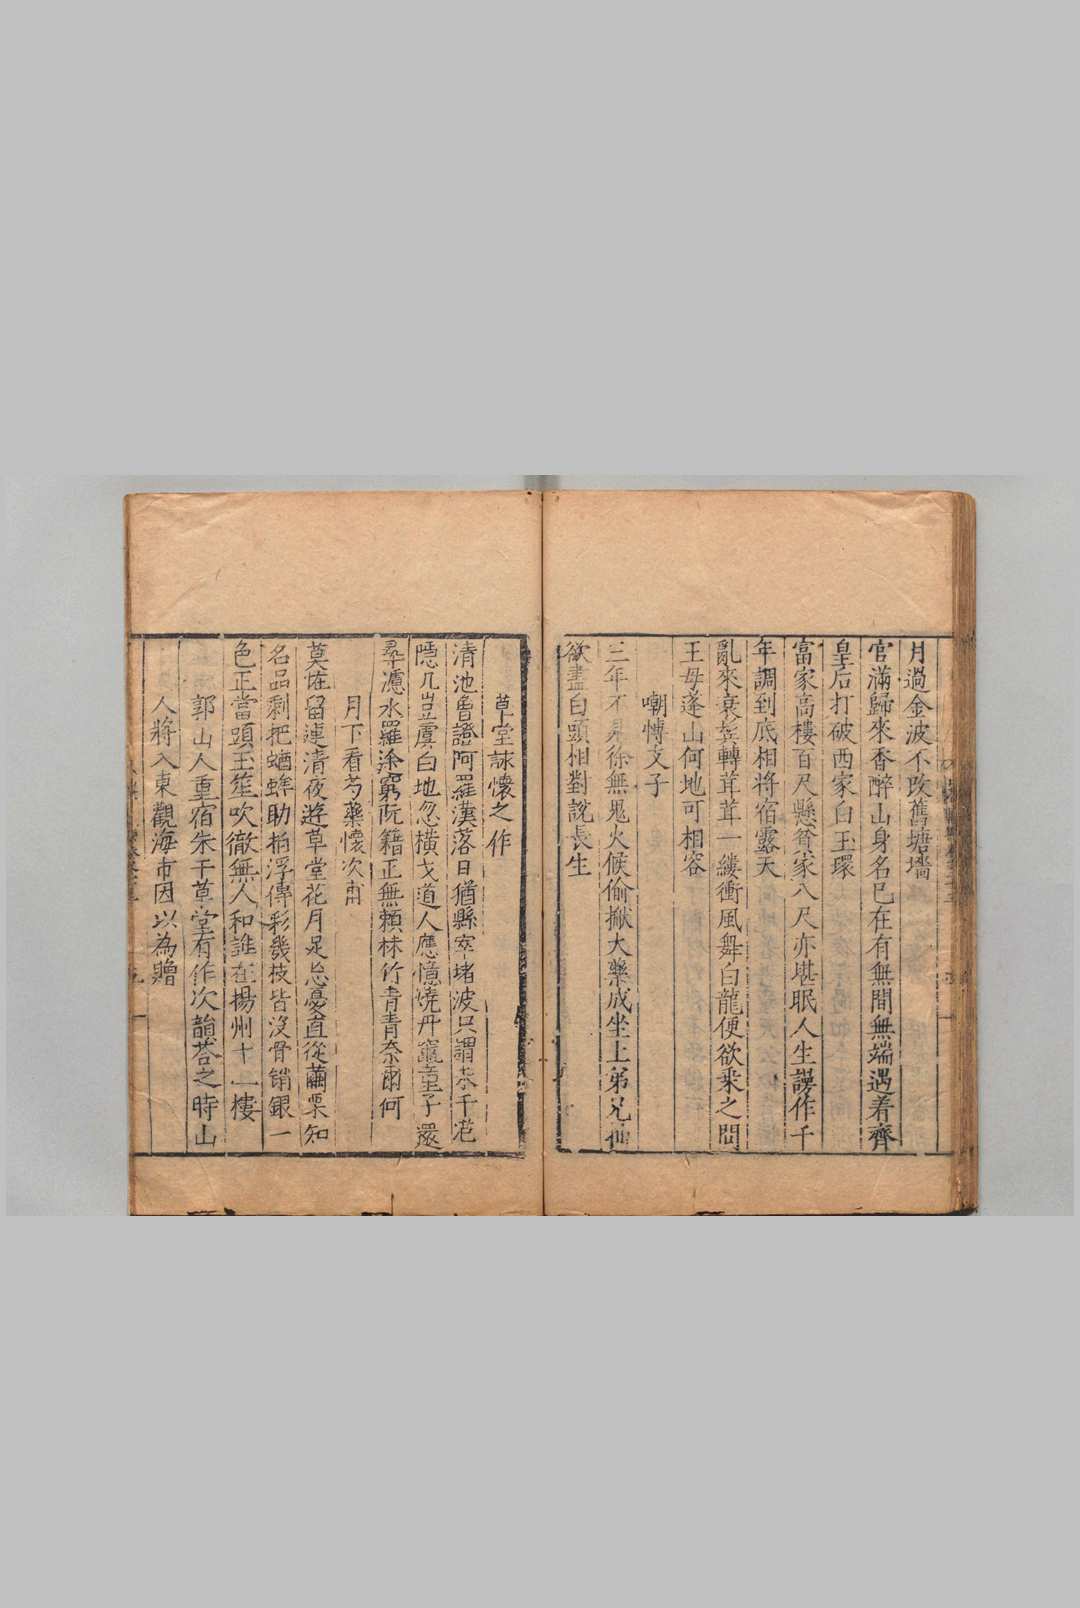 月過金波不改舊塘墻
官滿歸來香醉山身名已在有無間無端遇着齊
皇后打破西家白玉環
富家高樓百尺懸貧家八尺亦堪眠人生謾作千
年調到底相將宿露天
亂來衰髮轉茸茸一縷衝風舞白龍便欲乘之問
王母蓬山何地可相容
嘲愽文子
三年不見徐無鬼火候偷撇大藥成坐上弟兄仙
欲盡白頭相對說長生
草堂詠懷之作
清池魯證阿羅漢落日猶縣窣堵波只謂恭千老
隱几豈虞白地忽橫戈道人應憶燒丹竈童子還
尋漉水羅塗窮阮籍正無賴林竹青青奈爾何
月下看芍藥懷次甫
莫恠留連清夜遊草堂花月足忘憂直從繭栗知
名品剩把蝤蛑助拍浮傳彩幾枝皆沒骨銷銀一
色正當頭玉笙吹徹無人和誰在揚州十二樓
郭山人重宿朱干草堂有作次韻荅之時山
人將入東觀海市因以為贈